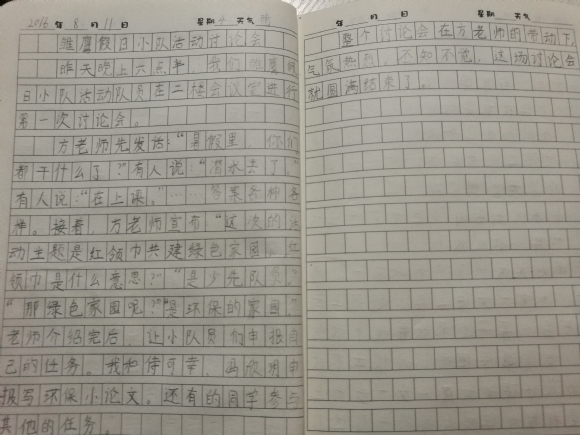 2016 年 8 月 11 日 星期 4 天气 晴
雏鹰假日小队活动讨论会
昨天晚上六点半，我们雏鹰假
日小队活动队员在二楼会议室进行
第一次讨论会。
方老师先发话：“暑假里，你们
都干什么了？”有人说：“潜水去了。”
有人说：“在上课。”……答案各种各
样。接着，方老师宣布：“这次的活
动主题是红领巾共建绿色家园。红
领巾是什么意思？”“是少先队员。”
“那绿色家园呢？”“是环保的家园。”
老师介绍完后，让小队员们申报自
己的任务。我和侍可幸、冯欣明申
报写环保小论文。还有的同学参与
其他的任务。
年 月 日 星期 天气
整个讨论会在方老师的带动下，
气氛热烈。不知不觉，这场讨论会
就圆满结束了。